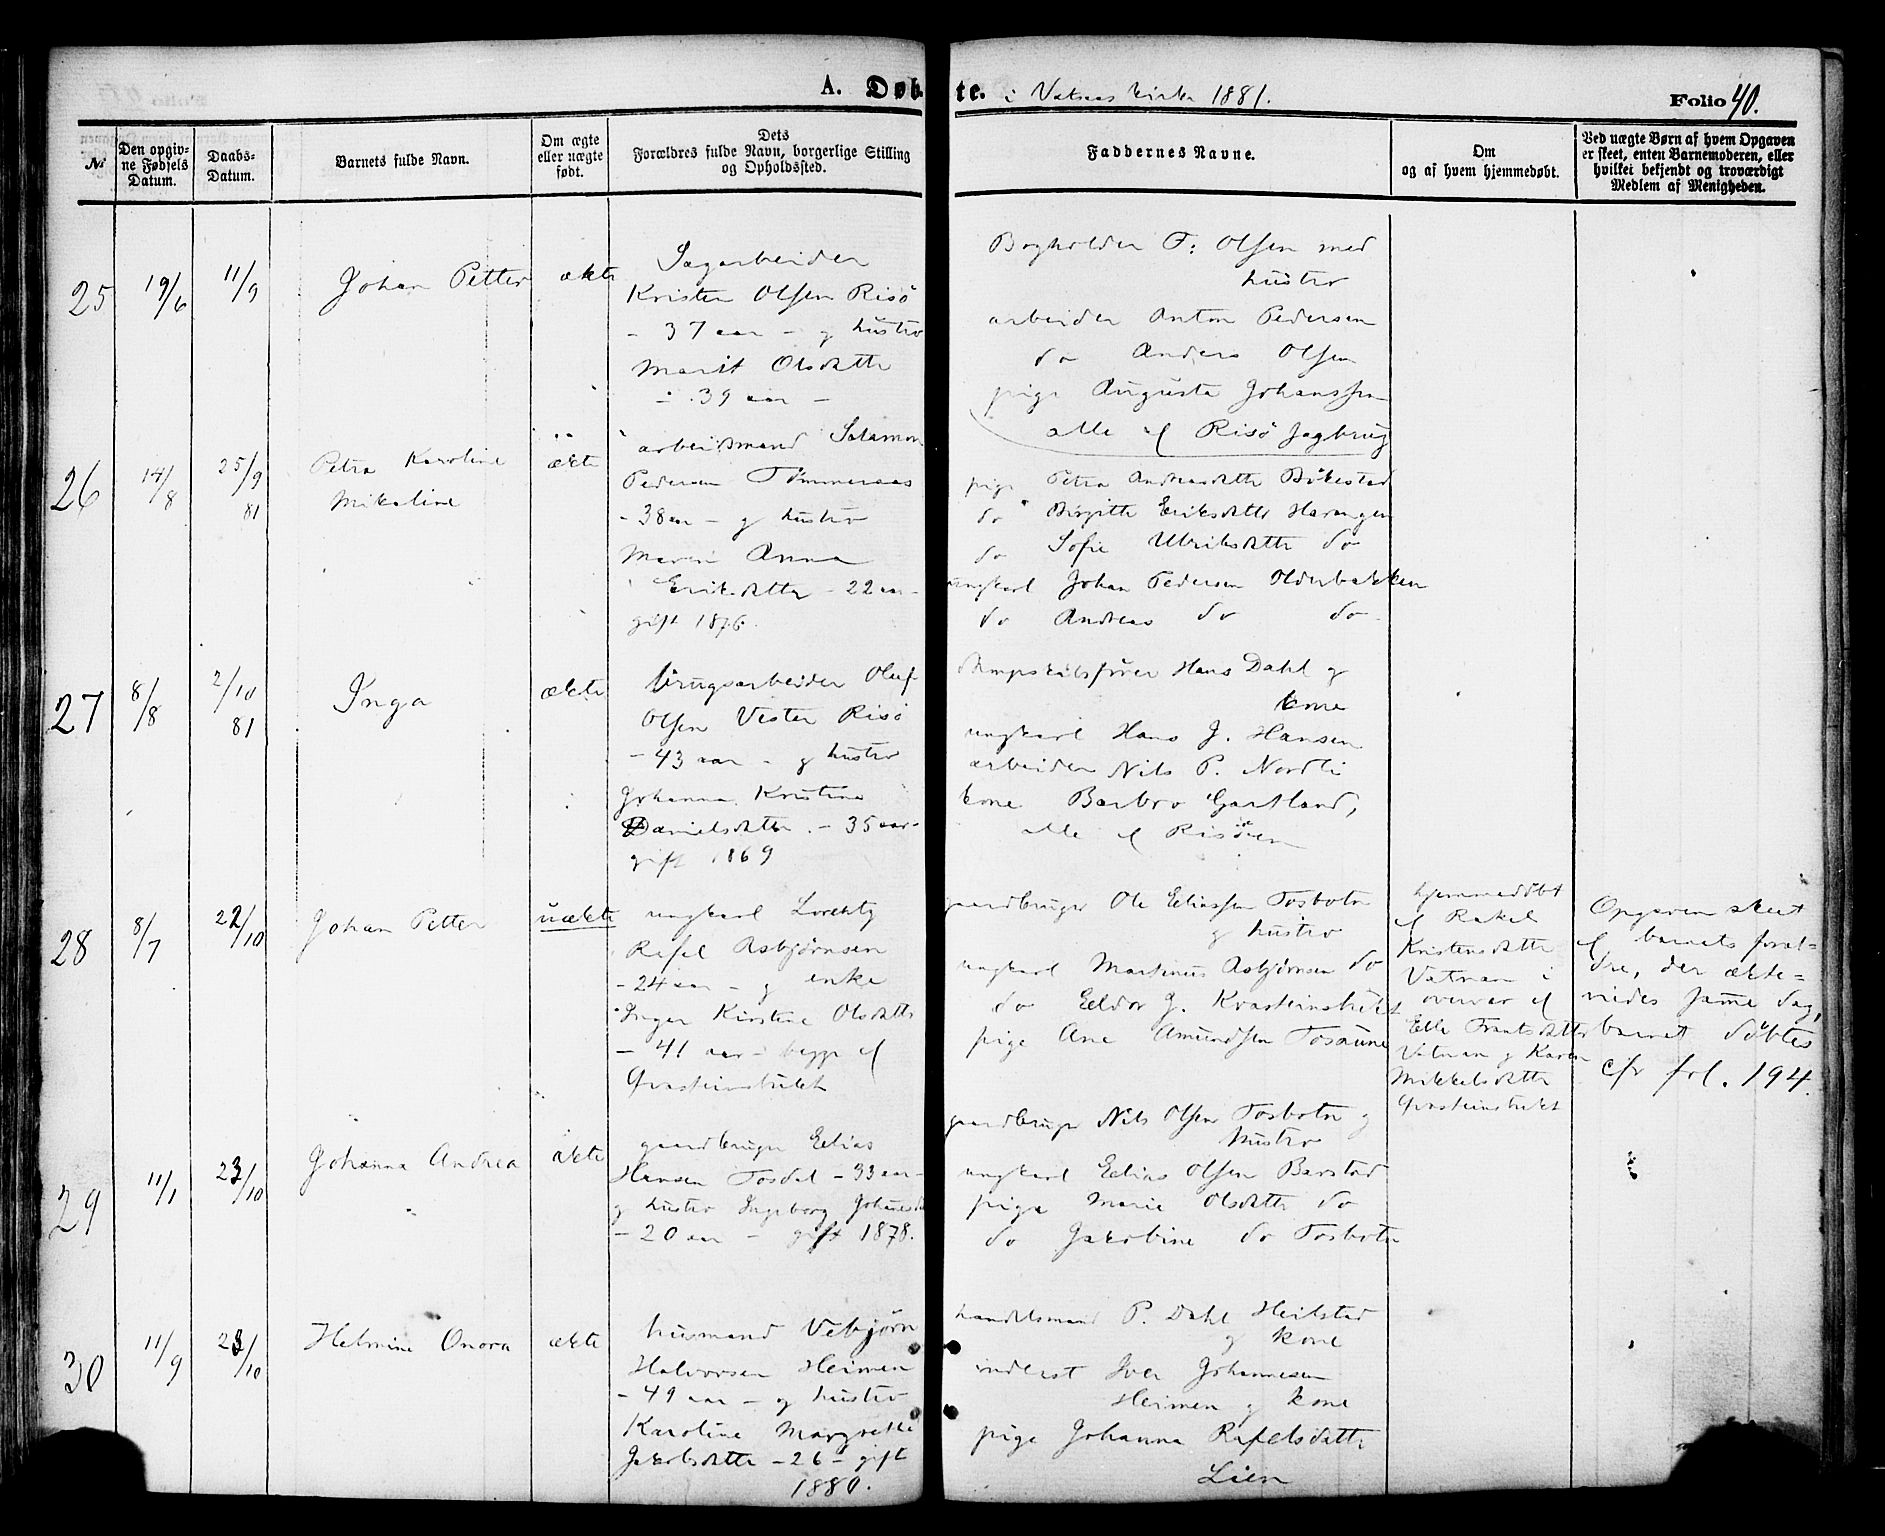 A. Døbte. i Vatnes kirke 1881.
Folio 40.
№
Den opgivne Fødsels Datum.
Daabs-Datum.
Barnets fulde Navn.
Om ægte eller uægte født.
Dets Forældres fulde Navn, borgerlige Stilling og Opholdssted.
Faddernes Navne.
Om og af hvem hjemmedøbt.
Ved uægte Børn af hvem Opgaven er skeet, enten Barnemoderen, eller hvilket bekjendt og troværdigt Medlem af Menigheden.
25
19/6
11/9
Johan Petter
ækte
Sagarbeider
Kristen Olsen Risö
- 37 aar - og hustro
Marit Olsdatter
- 39 aar -
Bogholder T: Olsen med
hustro
arbeider Anton Pedersen
do Anders Olsen
pige Augusta Johanssen
alle af Risö Sagbrug
26
14/8
25/9
81
Petra Karoline
Mikaline
ækte
arbeidsmand Salamon
Pedersen Tömmeraas
- 38 aar - og hustro
Maren Anna
Eriksdatter - 22 aar -
gift 1876.
pige Petra Andreasdatter Bökestad
do Birgitte Eriksdatter Harangen
do Sofie Ulriksdatter do
ungkarl Johan Pedersen Olderbakken
do Andreas do do
27
8/8
2/10
81
Inga
ækte
brugsarbeider Oluf
Olsen Vester Risö
- 43 aar - og hustro
Johanna Kristine
Danielsdatter - 35 aar -
gift 1869
Dampskibsförer Hans Dahl og
kone
ungkarl Hans J. Hansen
arbeider Nils P. Nordli
kone Barbro Gartland,
alle af Risöen
28
8/7
22/10
Johan Petter
uækte
ungkarl Lorentz
Rafel Asbjörnsen
- 24 aar - og enke
Inger Kirstine Olsdatter
- 41 aar - begge af
Qvasteinstrket
gaardbruger Ole Eeliassen Tosbotn
og hustro
ungkarl Martinus Asbjörnsen do
do Eeldor J. Kvasteinstrket
pige Ane Amundsen Tosaune
hjemmedöbt
af Rakel
Kristensdatter
Vatnan i
overvær af
Elle Frantsdatter
Vatnan og Karen
Mikkelsdatter
Qvasteinstrket
Opgaven skeet
af barnets foræl-
dre, der ækte-
viedes samme dag,
barnet döbtes
cfr fol. 194.
29
11/1
23/10
Johanna Andrea
ækte
gaardbruger Eelias
Hansen Tosdal - 33 aar -
og hustro Ingeborg Johannesd
- 20 aar - gift 1878.
gaardbruger Nils Olsen Tosbotn og
hustro
ungkarl Eelias Olsen Barstad
pige Marie Olsdatter do
do Jakobine do Tosbotn
30
11/9
23/10
Helmine Onora
ækte
husmand Vebjörn
Halvorsen Heimen
- 49 aar - og hustro
Karoline Margrethe
Jakobsdatter - 26 - gift
1880.
handelsmand P. Dahl Heilstad
og kone
inderst Iver Johannesen
Heimen og kone
pige Johanna Rafelsdatter
Lien